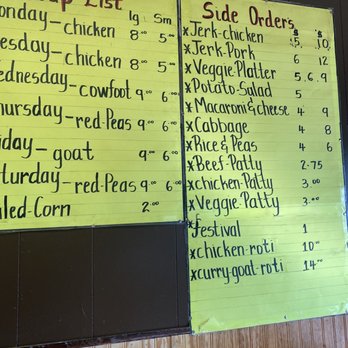 List
lg Sm
onday-chicken 8.00 5.00
esday-chicken 8.00 5.00
ednesday-cowfoot 9.00 6.00
hursday-red-Peas 9.00 6.00
iday-goat 9.00 6.00
turday-red-Peas 9.00 6.00
iled-Corn 2.00
Side Orders
$ $
xJerk-chicken 5, 10,
xJerk-Pork 6 12
xVeggie-Platter 5, 6, 9
xPotato-Salad 5
xMacaroni&cheese 4 9
xCabbage 4 8
xRice & Peas 4 6
xBeef-Patty 2.75
xchicken-Patty 3.00
xVeggie-Patty 3.00
xFestival 1
xchicken-roti 10.00
xcurry-goat-roti 14.00